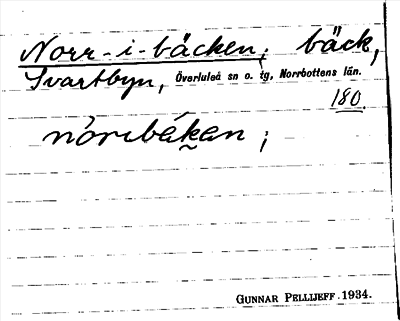 Norr-i-bäcken; bäck,
Svartbyn, Överluleå sn o. tg, Norrbottens län.
180.
nòrıbákan ;
GUNNAR PELLIJEFF.1934.